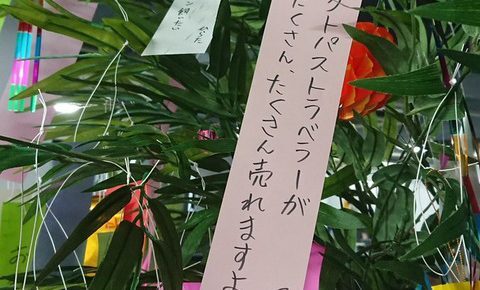 トパストラベラーが
たくさん、たくさん売れますよ
飼いたい